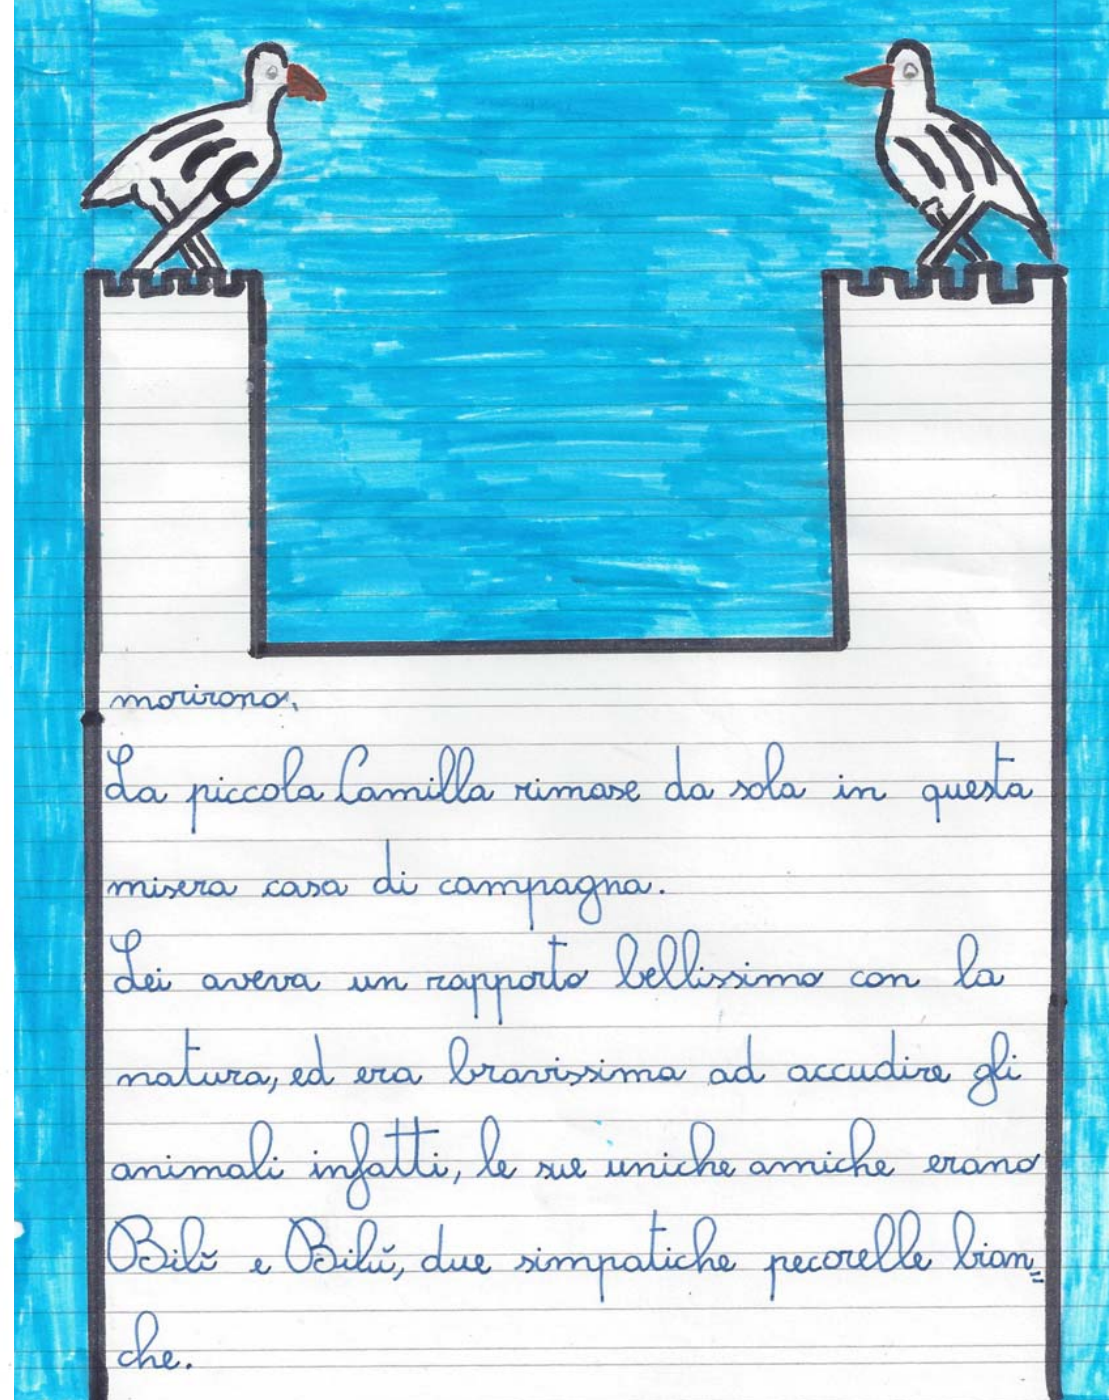 morirono.
La piccola Camilla rimase da sola in questa
misera casa di campagna.
Lei aveva un rapporto bellissimo con la
natura, ed era bravissima ad accudire gli
animali infatti, le sue uniche amiche erano
Bilì e Bilù, due simpatiche pecorelle bian=
che.